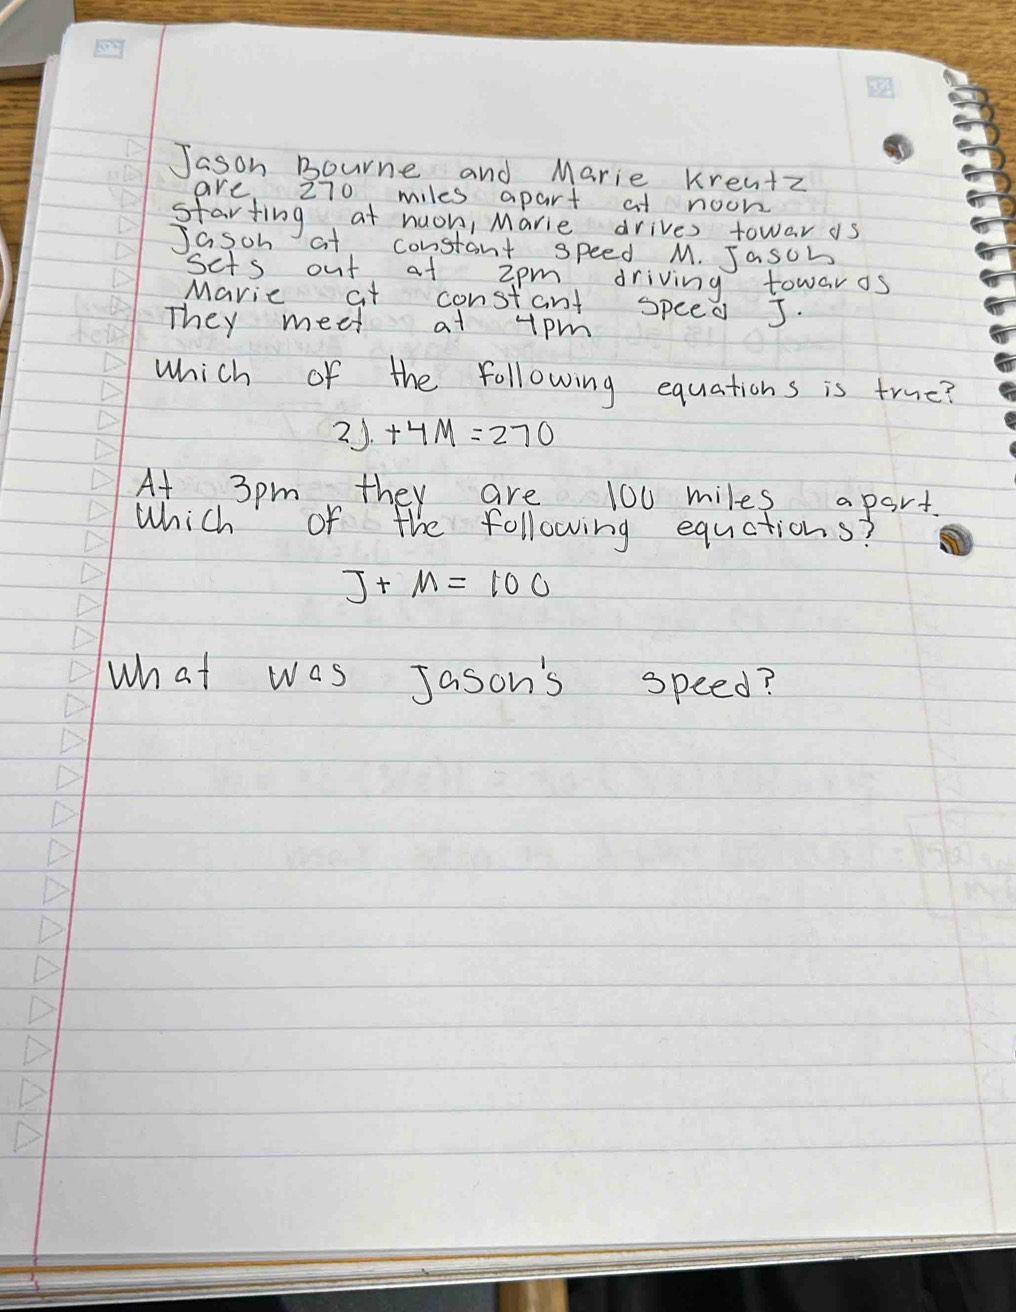 Jason Bourne and Marie Kreutz
are 270 miles apart at noon
starting at nuon, Marie drives towards
Jason at constant speed M. Jason
sets out at 2pm driving towards
Marie at constant speed J.
They meet at 4pm
which of the following equations is true?
2J + 4M = 270
At 3pm they are 100 miles apart.
Which of the following equations?
J + M = 100
What was Jason's speed?